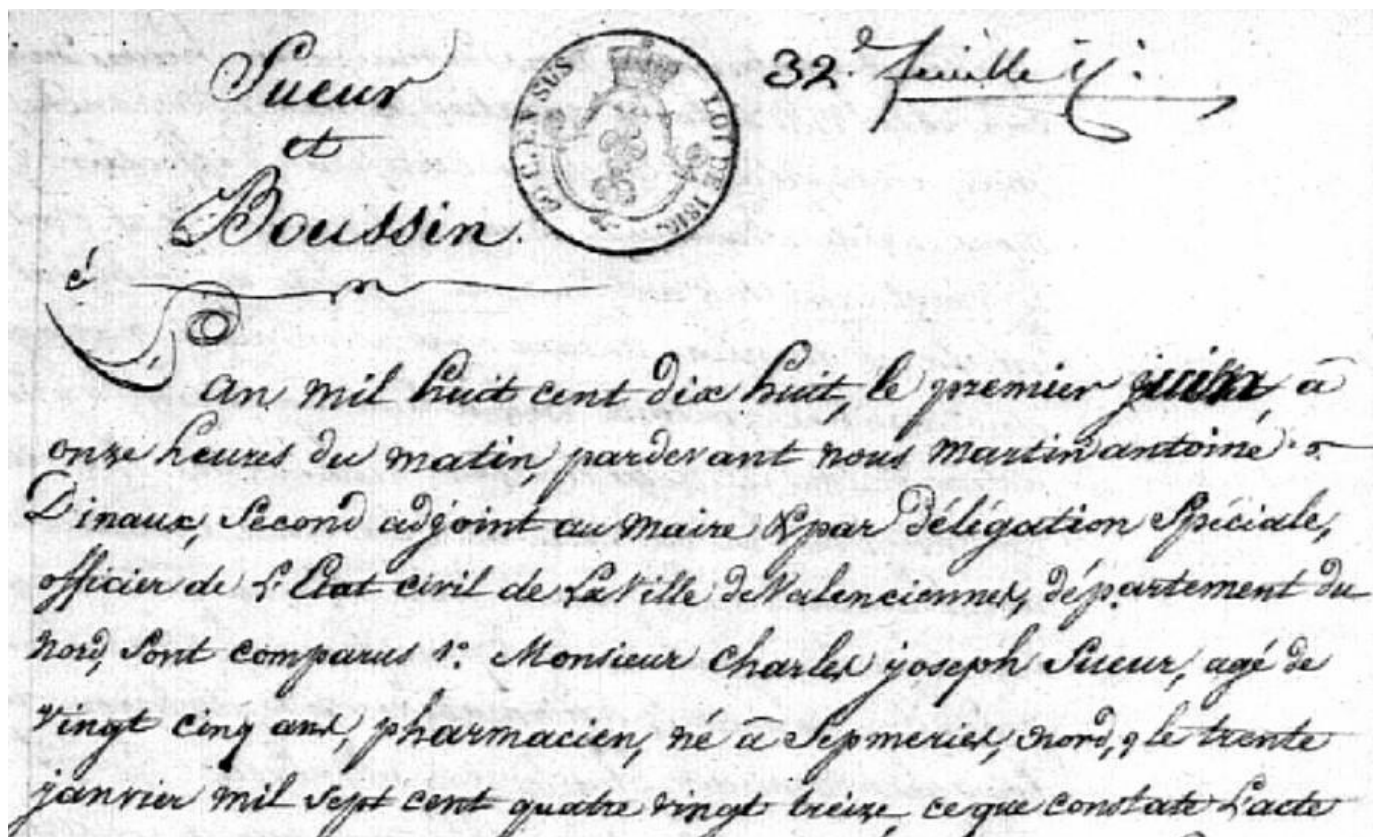 Sueur
et
Boussin.
32e. feuille
LOI DE 1816
EN SUS
An mil huit cent dix huit, le premier juin, à
onze heures du matin, pardevant nous Martin antoine
Dinaux, Second adjoint au maire & par Délégation Spéciale,
officier de L'Etat civil de La Ville de Valenciennes, département du
Nord, Sont comparus 1°. Monsieur Charles joseph Sueur, agé de
vingt cinq ans, pharmacien, né à Sepmeries, Nord, le trente
janvier mil sept cent quatre vingt treize, ce que constate L'acte